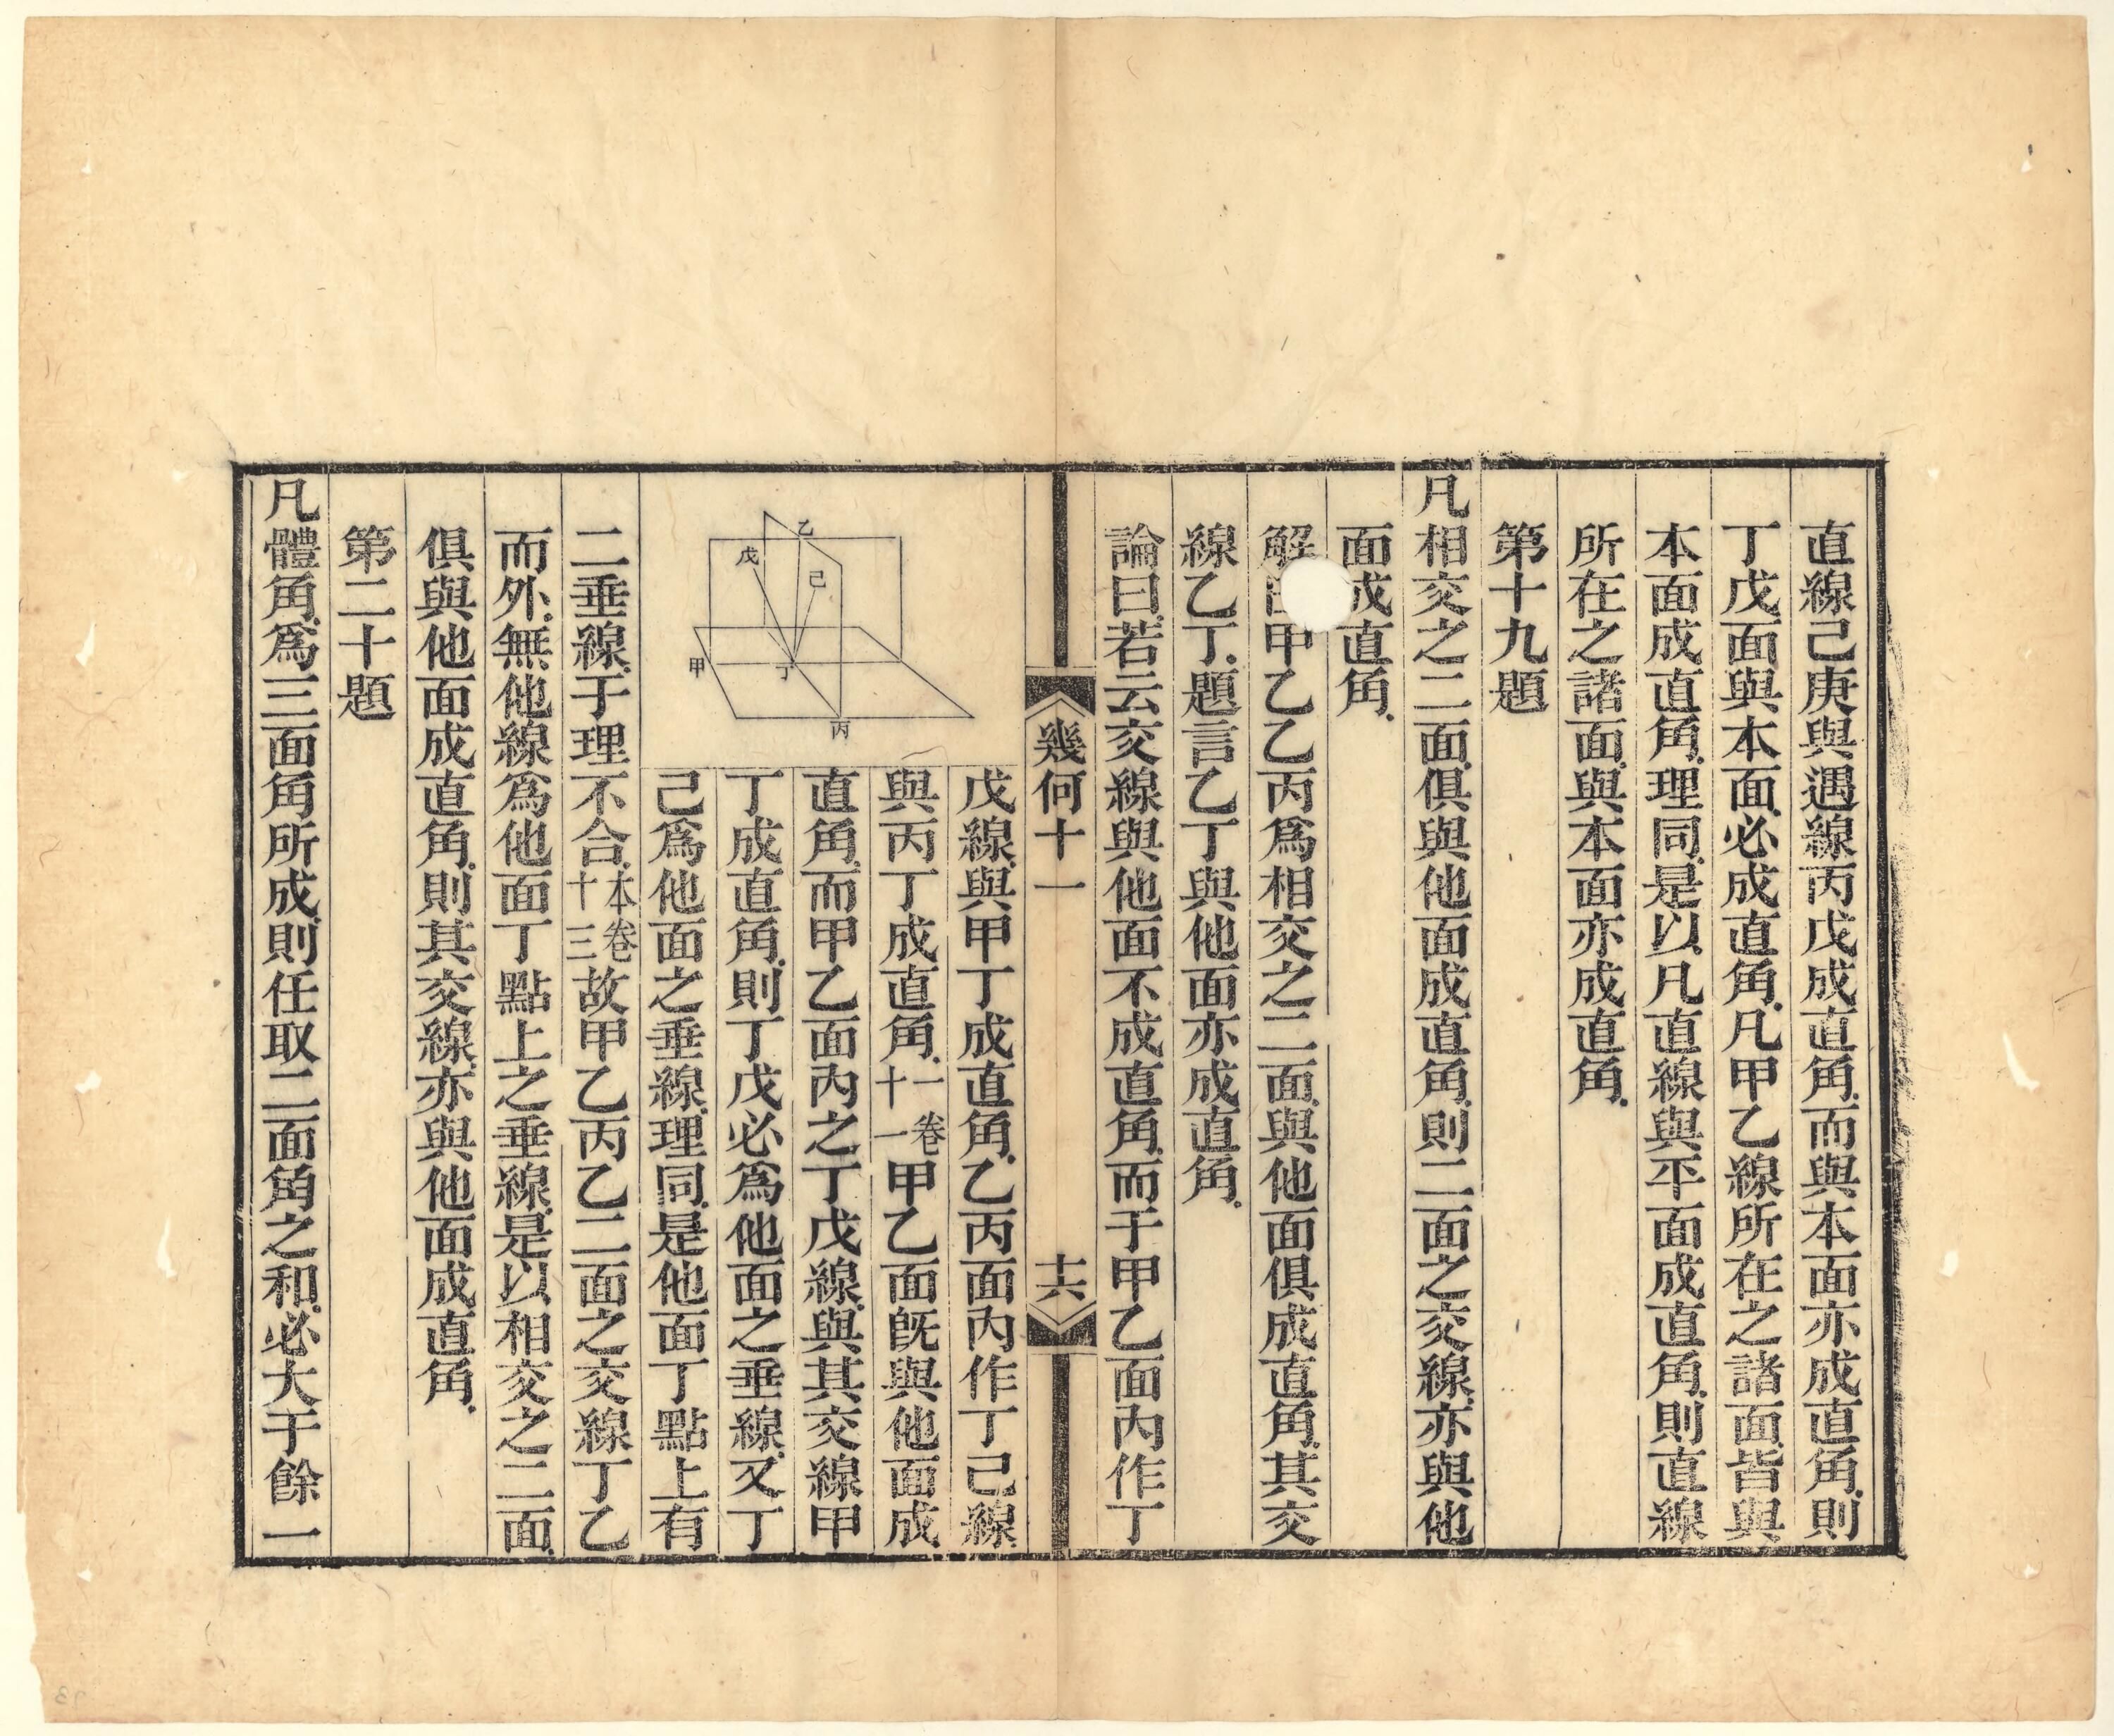 直線己庚與遇線丙戊成直角.而與本面亦成直角.則
丁戊面與本面.必成直角.凡甲乙線所在之諸面.皆與
本面成直角.理同.是以.凡直線與平面成直角.則直線
所在之諸面.與本面亦成直角.
第十九題
凡相交之二面.俱與他面成直角.則二面之交線.亦與他
面成直角.
解曰甲乙乙丙爲相交之二面.與他面俱成直角.其交
線乙丁.題言乙丁與他面亦成直角.
論曰.若云交線與他面不成直角.而于甲乙面內作丁
幾何十一
十六
戊線.與甲丁成直角.乙丙面內作丁己線
與丙丁成直角.一卷十一甲乙面既與他面成
直角.而甲乙面內之丁戊線.與其交線甲
丁成直角.則丁戊必爲他面之垂線.又丁
己爲他面之垂線.理同.是他面丁點上有
二垂線.于理不合.本卷十三故甲乙丙乙二面之交線丁乙
而外.無他線爲他面丁點上之垂線.是以相交之二面.
俱與他面成直角.則其交線.亦與他面成直角.
第二十題
凡體角.爲三面角所成.則任取二面角之和.必大于餘一
乙
戊
己
甲
丁
丙